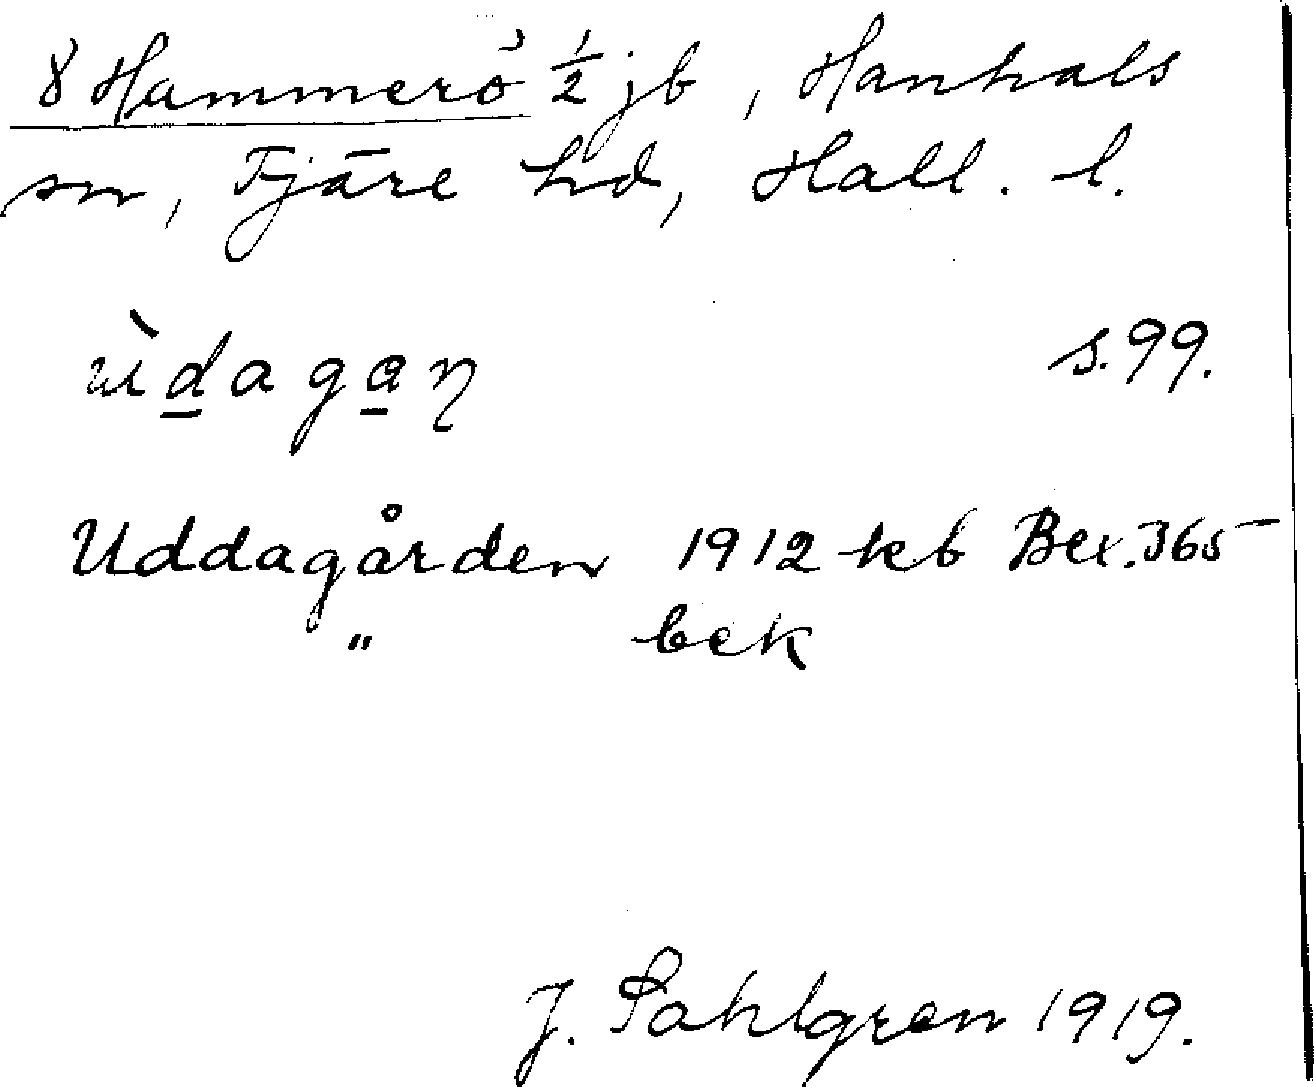 8 Hammerö ½ jb, Hanhals
sn, Fjäre hd, Hall. l.
ùdagaꞃ s. 99.
Uddagården 1912 kb Bex. 365
" bek
J. Sahlgren 1919.